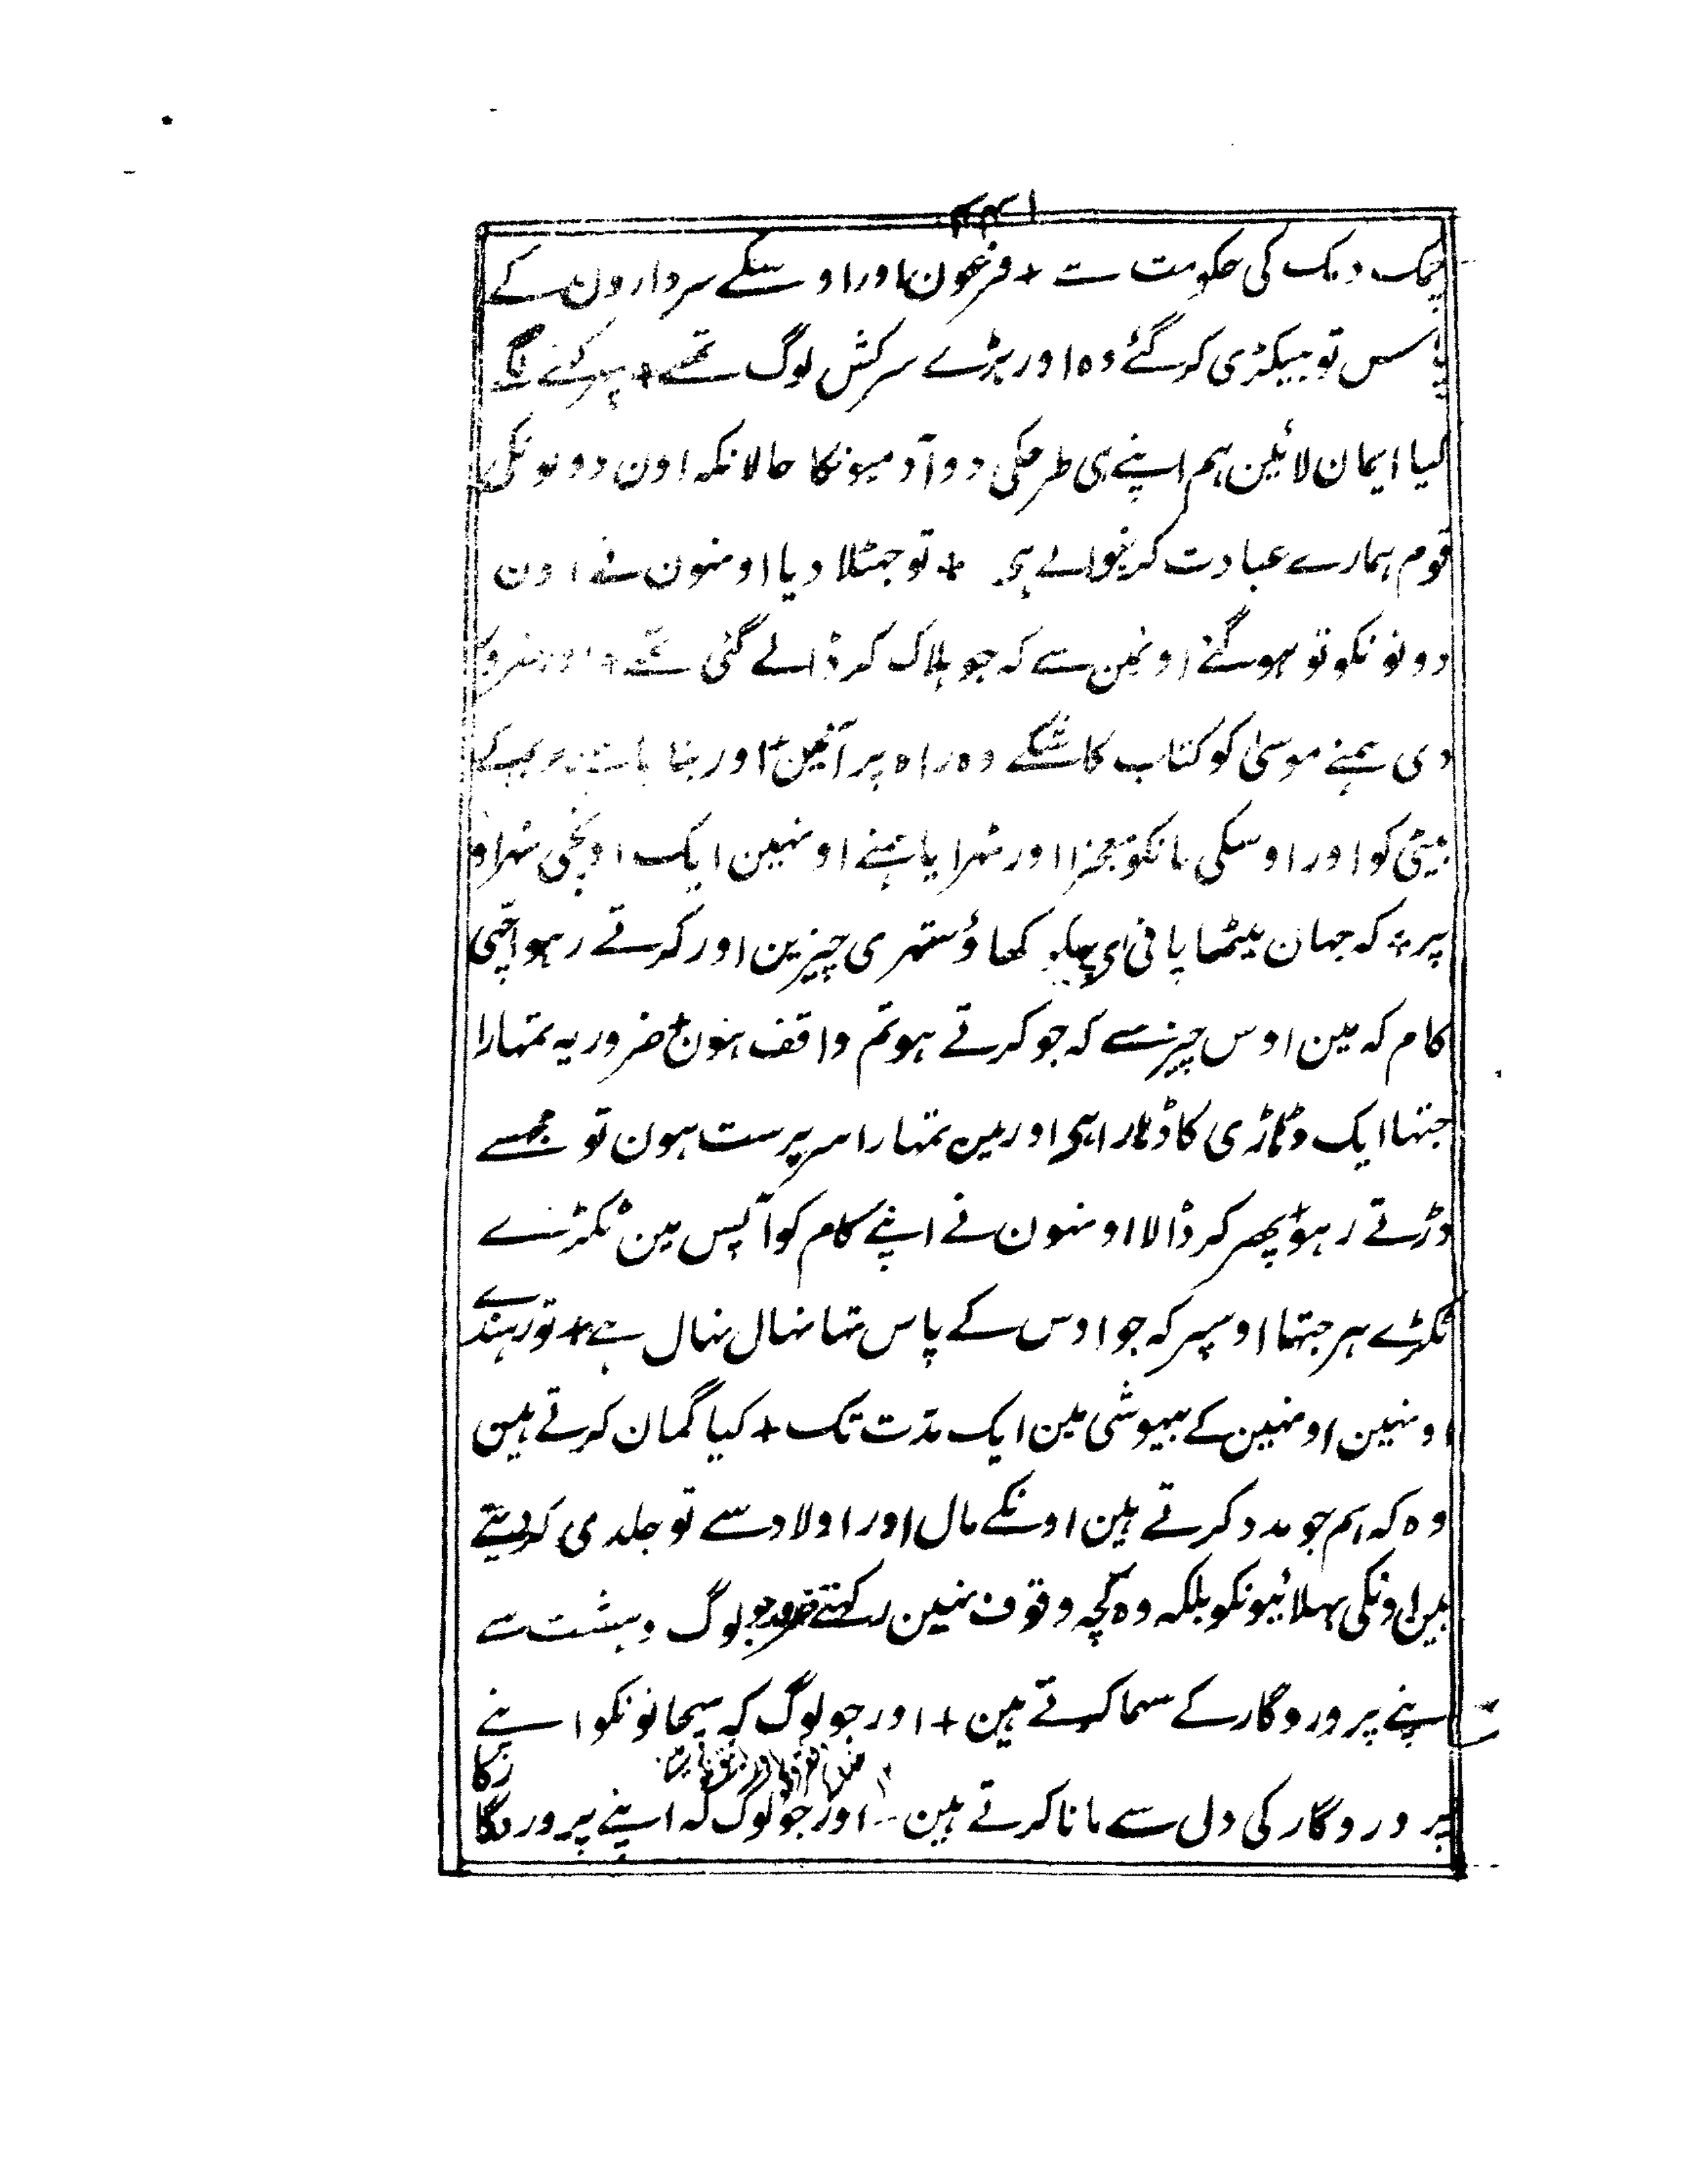 چمک دمک کی حکومت سے + فرعون اور اوسکے سردارون کے
پاس تو ہیکڑی کر گئے وہ اور بڑے سرکش لوگ تھے + پہر کہنے لگے
کیا ایمان لائین ہم اپنے ہی طرحکی دو آدمیونکا حالانکہ اون دونونکی
قوم ہمارے عبادت کرنیوالے ہی + تو جہٹلا دیا اونہون نے اون
دونونکو تو ہوگئے اونمین سے کہ جو ہلاک کر ڈالے گئی تھے + اور ضرور
دی ہمنے موسیٰ کو کتاب کاشکے وہ راہ پر آئین + اور بنایا ہمنے مریم کے
بیٹی کو اور اوسکی مانکو معجزا اور ٹہرایا ہمنے اونہین ایک اونچی ٹہراؤ
پر + کہ جہان میٹھا پانی ہی کھاؤ ستھری چیزین اور کرتے رہو اچھی
کام کہ مین اوس چیز سے کہ جو کرتے ہو تم واقف ہون + ضرور یہ تمہارا
جتہا ایک دہاڑی کا دہاڑا ہی اور مین تمہارا سرپرست ہون تو مجہسے
ڈرتے رہو + پھر کر ڈالا اونہون نے اپنے کام کو آپس مین ٹکڑے
ٹکڑے ہر جتہا اوسپر کہ جو اوس کے پاس تہا نہال نہال ہے + تو رہندے
اونہین اونہین کے بیہوشی مین ایک مدّت تک + کیا گمان کرتے ہین
وہ کہ ہم جو مدد کرتے ہین اونکے مال اور اولاد سے تو جلدی کر دیتے
ہین اونکی بہلائیونکو بلکہ وہ کچہ وقوف نہین رکہتے ضرور جو لوگ دہشت سے
اپنے پروردگار کے سہما کرتے ہین + اور جو لوگ کہ اپنے
پروردگار کی دل سے مانا کرتے ہین اور جو لوگ کہ اپنے پروردگار کا